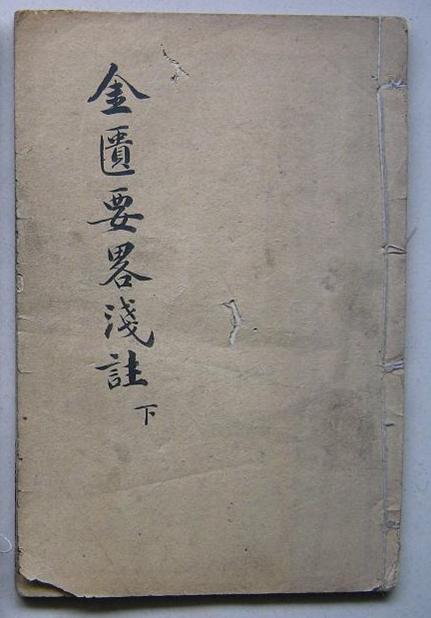 金匱要畧淺註
下